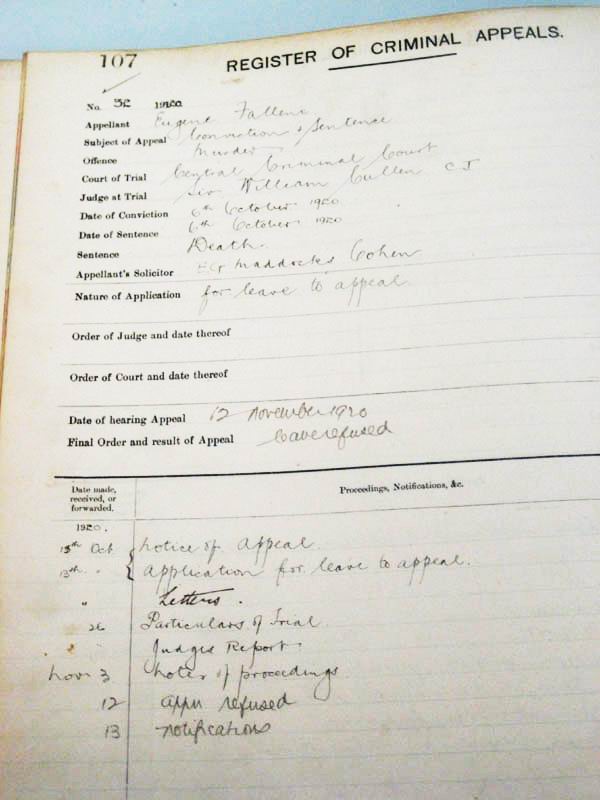 107
REGISTER OF CRIMINAL APPEALS.
No. 32 1920
Appellant Eugene Falleni
Subject of Appeal Conviction & Sentence
Offence Murder
Court of Trial Central Criminal Court
Judge at Trial Sir William Cullen C J
Date of Conviction 6th October 1920
Date of Sentence 6th October 1920
Sentence Death.
Appellant's Solicitor Maddocks Cohen
Nature of Application for leave to appeal
Order of Judge and date thereof
Order of Court and date thereof
Date of hearing Appeal 12 november 1920
Final Order and result of Appeal Leave refused
Date made, received, or forwarded.
Proceedings, Notifications, &c.
1920.
13th Oct notice of Appeal.
13th " application for leave to appeal.
" Letters.
26 Particulars of Trial
Judges Report.
Nov 3 notes of proceedings
12 appn refused
13 notifications